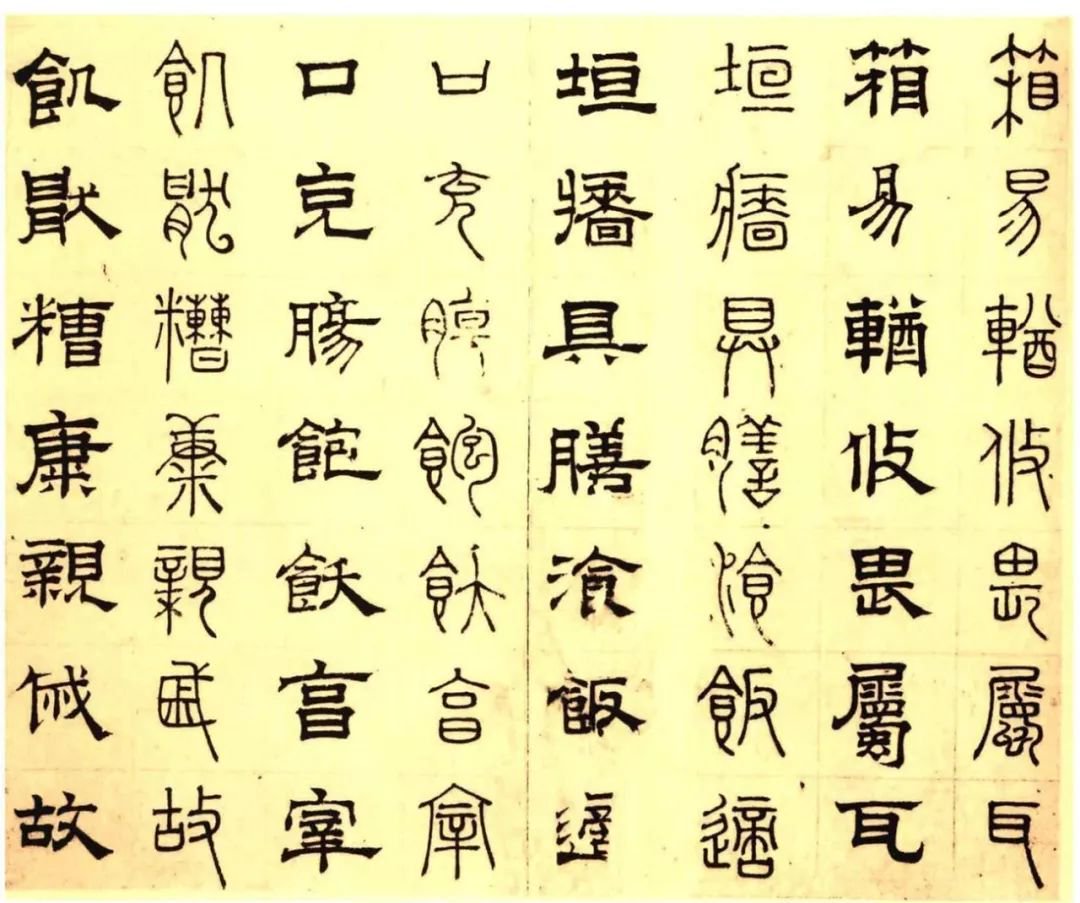 箱易輶攸畏屬耳
箱易輶攸畏屬耳
垣牆具膳湌飯適
垣牆具膳湌飯適
口充腸飽飫享宰
口充腸飽飫享宰
飢猒糟糠親戚故
飢猒糟康親戚故